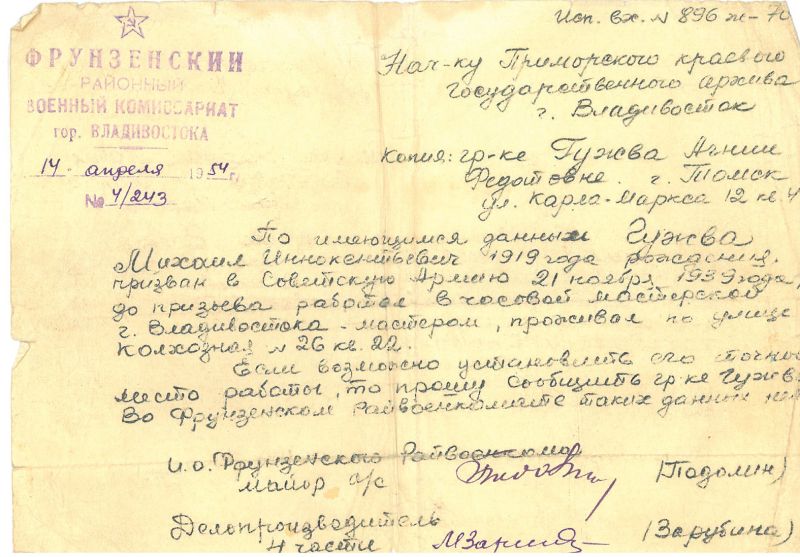 Исп. вх. N 896 ж-70
ФРУНЗЕНСКИЙ
РАЙОННЫЙ
ВОЕННЫЙ КОМИССАРИАТ
гор. ВЛАДИВОСТОКА
14 апреля 1954 г.
№ 4/243
Нач-ку Приморского краевого
государственного архива
г. Владивосток
Копия: гр-ке Гужва Агнии
Федотовне. г. Томск
ул. Карла-Маркса 12 кв. 4
По имеющимся данных Гужва
Михаил Иннокентьевич 1919 года рождения,
призван в Советскую Армию 21 ноября 1939 года,
до призыва работал в часовой мастерской
г. Владивостока - мастером, проживал по улице
Колхозная N 26 кв. 22.
Если возможно установить его точное
место работы, то прошу сообщить гр-ке Гужва
Во Фрунзенском Райвоенкомате таких данных нет
И.о. Фрунзенского Райвоенкома
майор а/с
(Подолин)
Делопроизводитель
4 части
(Зарубина)